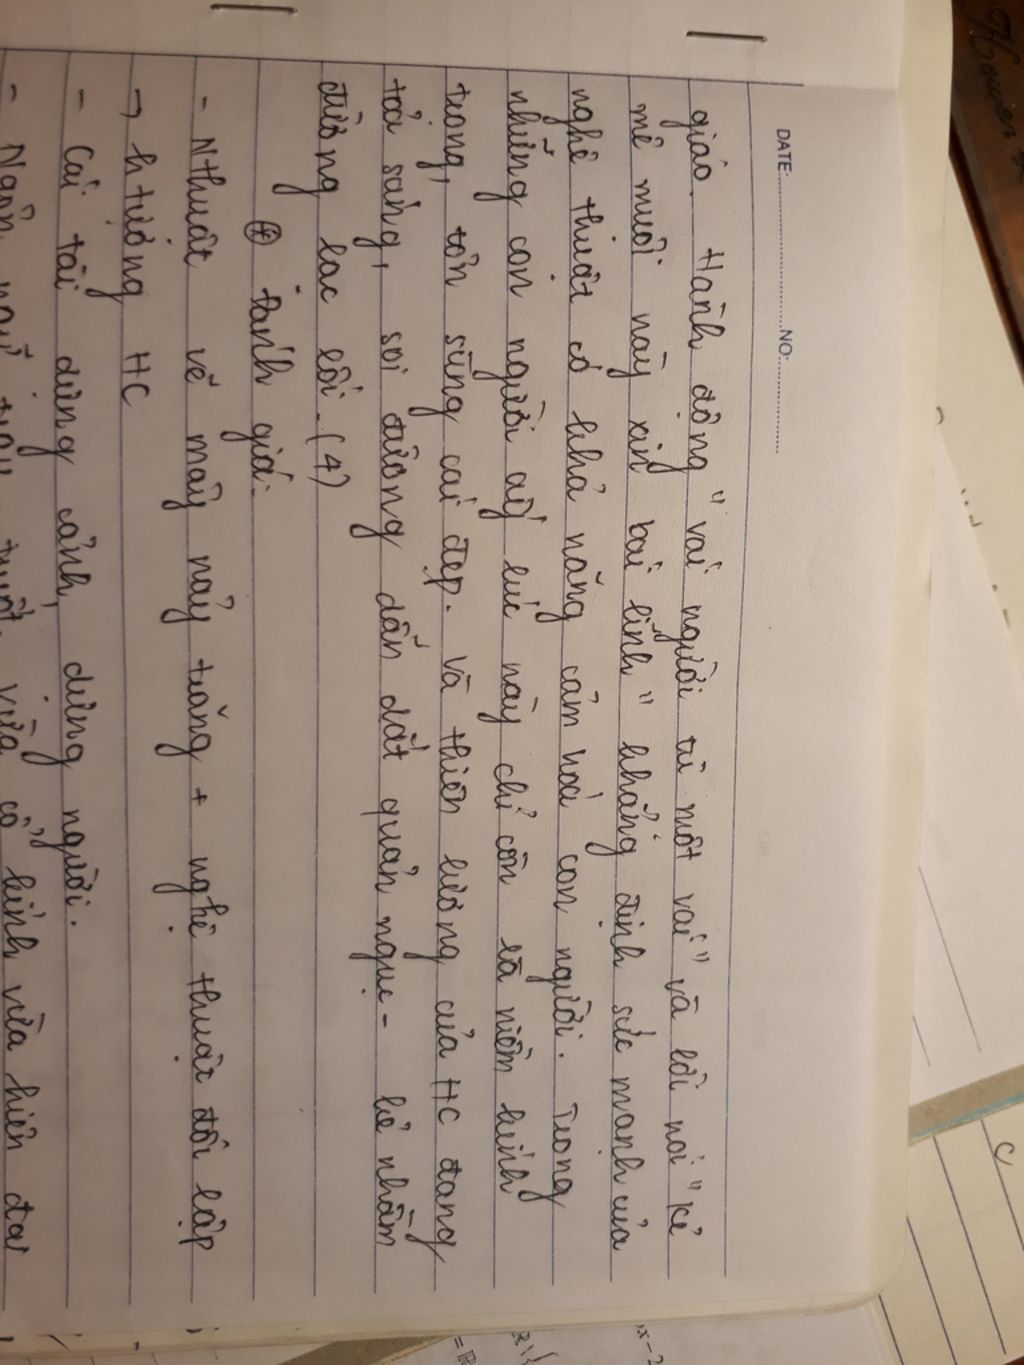 DATE: NO:
giáo. Hành động "vái người tù một vái" và lời nói "kẻ
mê muội này xin bái lĩnh" khẳng định sức mạnh của
nghệ thuật có khả năng cảm hoá con người. Trong
những con người ấy lúc này chỉ còn là niềm kính
trọng, tôn sùng cái đẹp. Và thiên lương của HC đang
toả sáng, soi đường dẫn dắt quản ngục - kẻ nhầm
đường lạc lối. (4)
⊕ Đánh giá:
- Nthuật vẽ mây nảy trăng + nghệ thuật đối lập
→ h tượng HC
- Cái tài dựng cảnh, dựng người.
- Ngôn ngữ vừa cổ kính vừa hiện đại